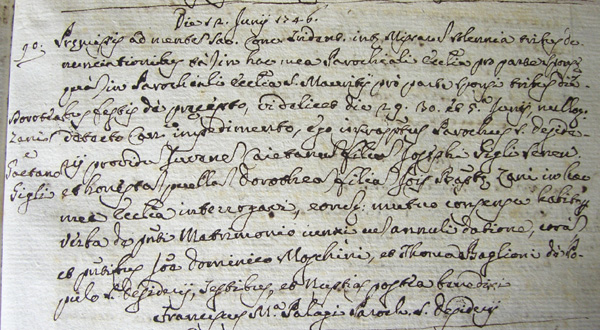 Die 12. Junij 1746.
90. Præmissis ad mentem Sac. Conc. Trident. int. Missar. solemnia tribus de
nunciationibus tã in hac mea Parochiali Ecclia pro parte sponsę
quã in Parochiali Ecclia S. Mauritij pro parte sponsi tribus die
Dorothea Zani
bus festis de præcepto, videlicet die 29. 30. et 5. Junij nulloq.
detecto can. impedimento, ego infrascriptus Parochus S. Deside
Gaetano Gigli
rij prædictũ Juvenẽ Caietanũ filiũ Josephi Gigli
et honestã puellã Dorotheã filiã Jõis Bapt. Zani in hac
mea Ecclia interrogavi, eorũq. mutuo consensu habito p
verba de pñti Matrimonio iunxi annuli datione, corã
et pñtibus Joẽ Dominico Moschini, et Thoma Baglioni de Po-
pulo S. Desiderij, testibus, et Nuptias postea benedixi
Franciscus Mª Palagi Paroch. S. Desiderij